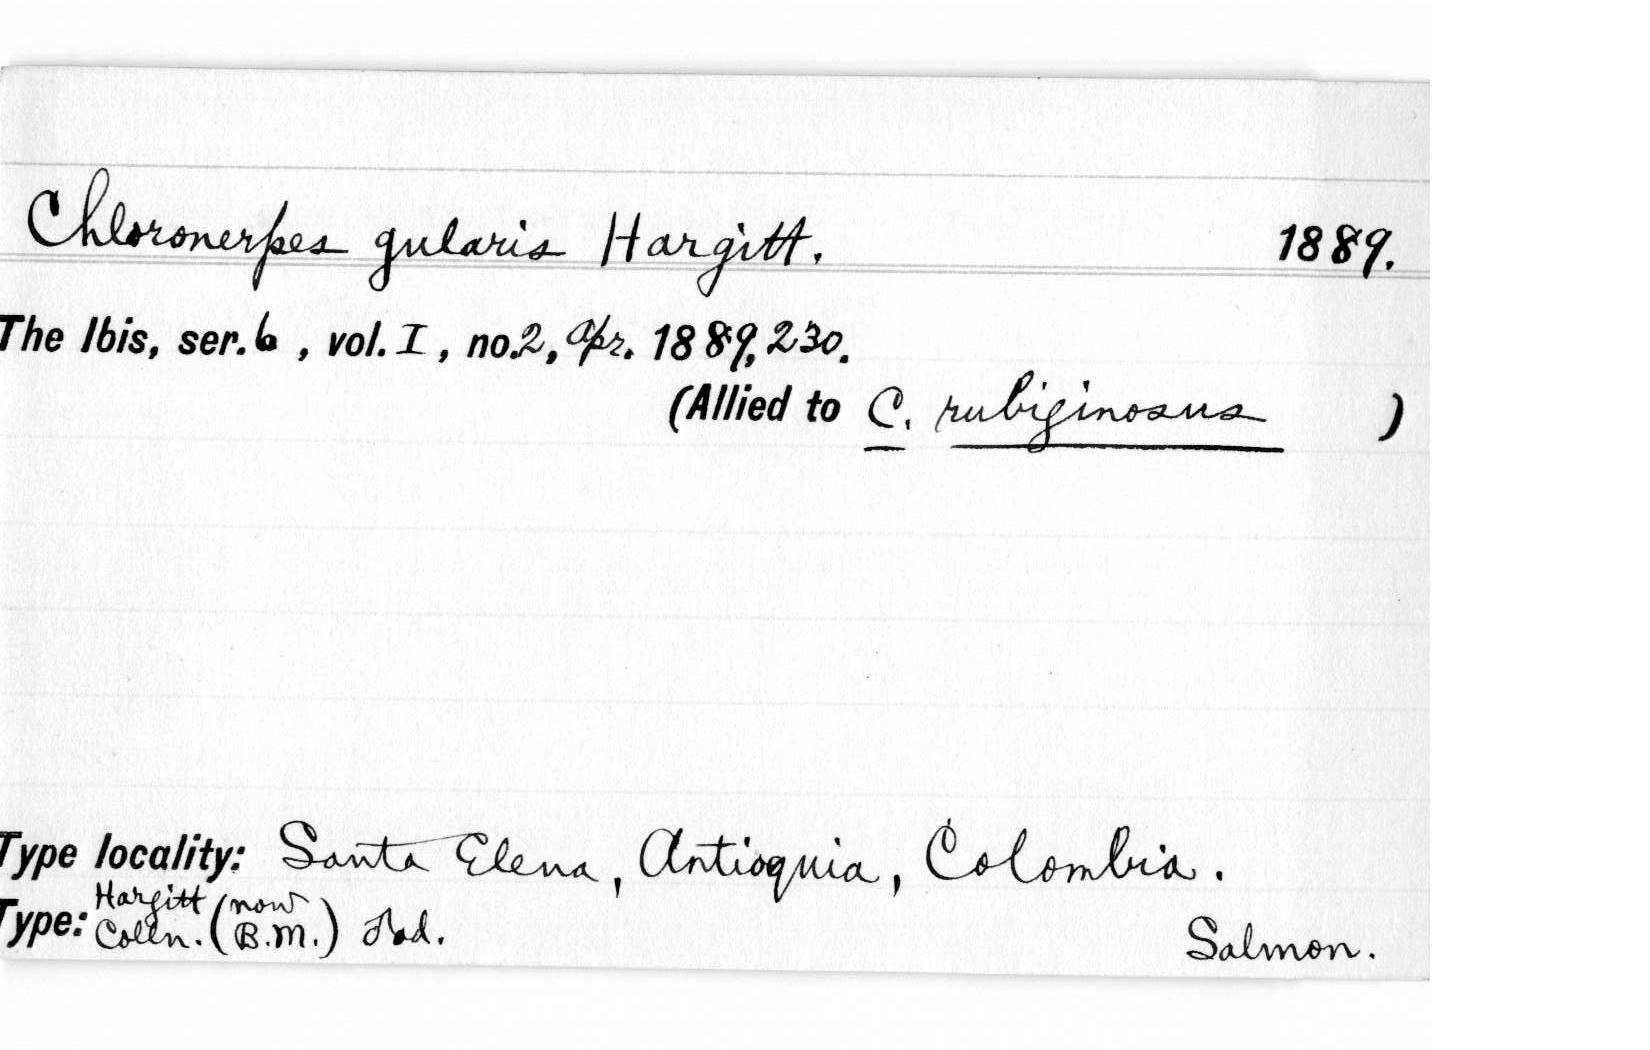 Chloronerpes gularis Hargitt. 1889.
The Ibis, ser. 6, vol. I, no. 2, Apr. 1889, 230.
(Allied to C. rubiginosus )
Type locality: Santa Elena, Antioquia, Colombia.
Type: Hargitt Colln. (now B.M.) ad.
Salmon.